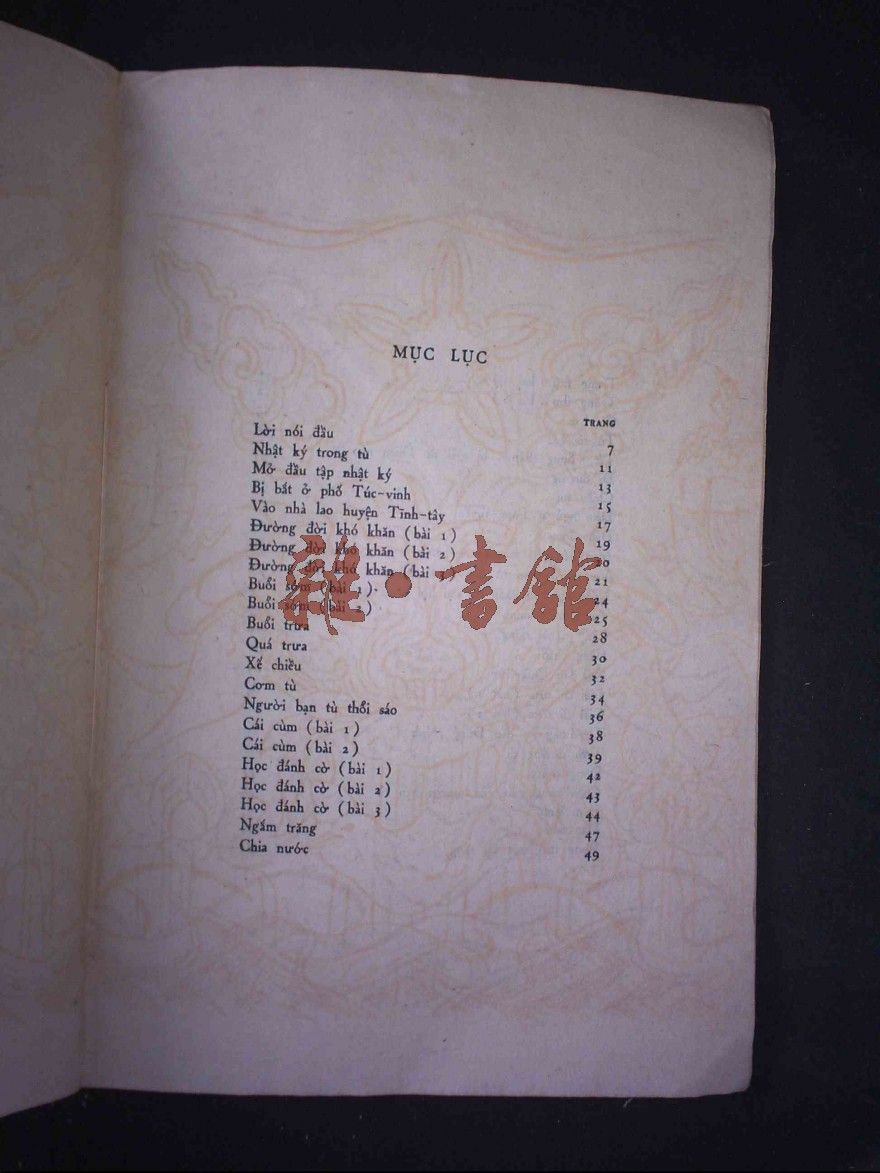 MỤC LỤC
TRANG
Lời nói đầu 7
Nhật ký trong tù 11
Mở đầu tập nhật ký 13
Bị bắt ở phố Túc-vinh 15
Vào nhà lao huyện Tĩnh-tây 17
Đường đời khó khăn (bài 1) 19
Đường đời khó khăn (bài 2) 20
Đường đời khó khăn (bài 3) 21
Buổi sớm (bài 1) 24
Buổi sớm (bài 2) 25
Buổi trưa 28
Quá trưa 30
Xế chiều 32
Cơm tù 34
Người bạn tù thổi sáo 36
Cái cùm (bài 1) 38
Cái cùm (bài 2) 39
Học đánh cờ (bài 1) 42
Học đánh cờ (bài 2) 43
Học đánh cờ (bài 3) 44
Ngắm trăng 47
Chia nước 49
雜·書館